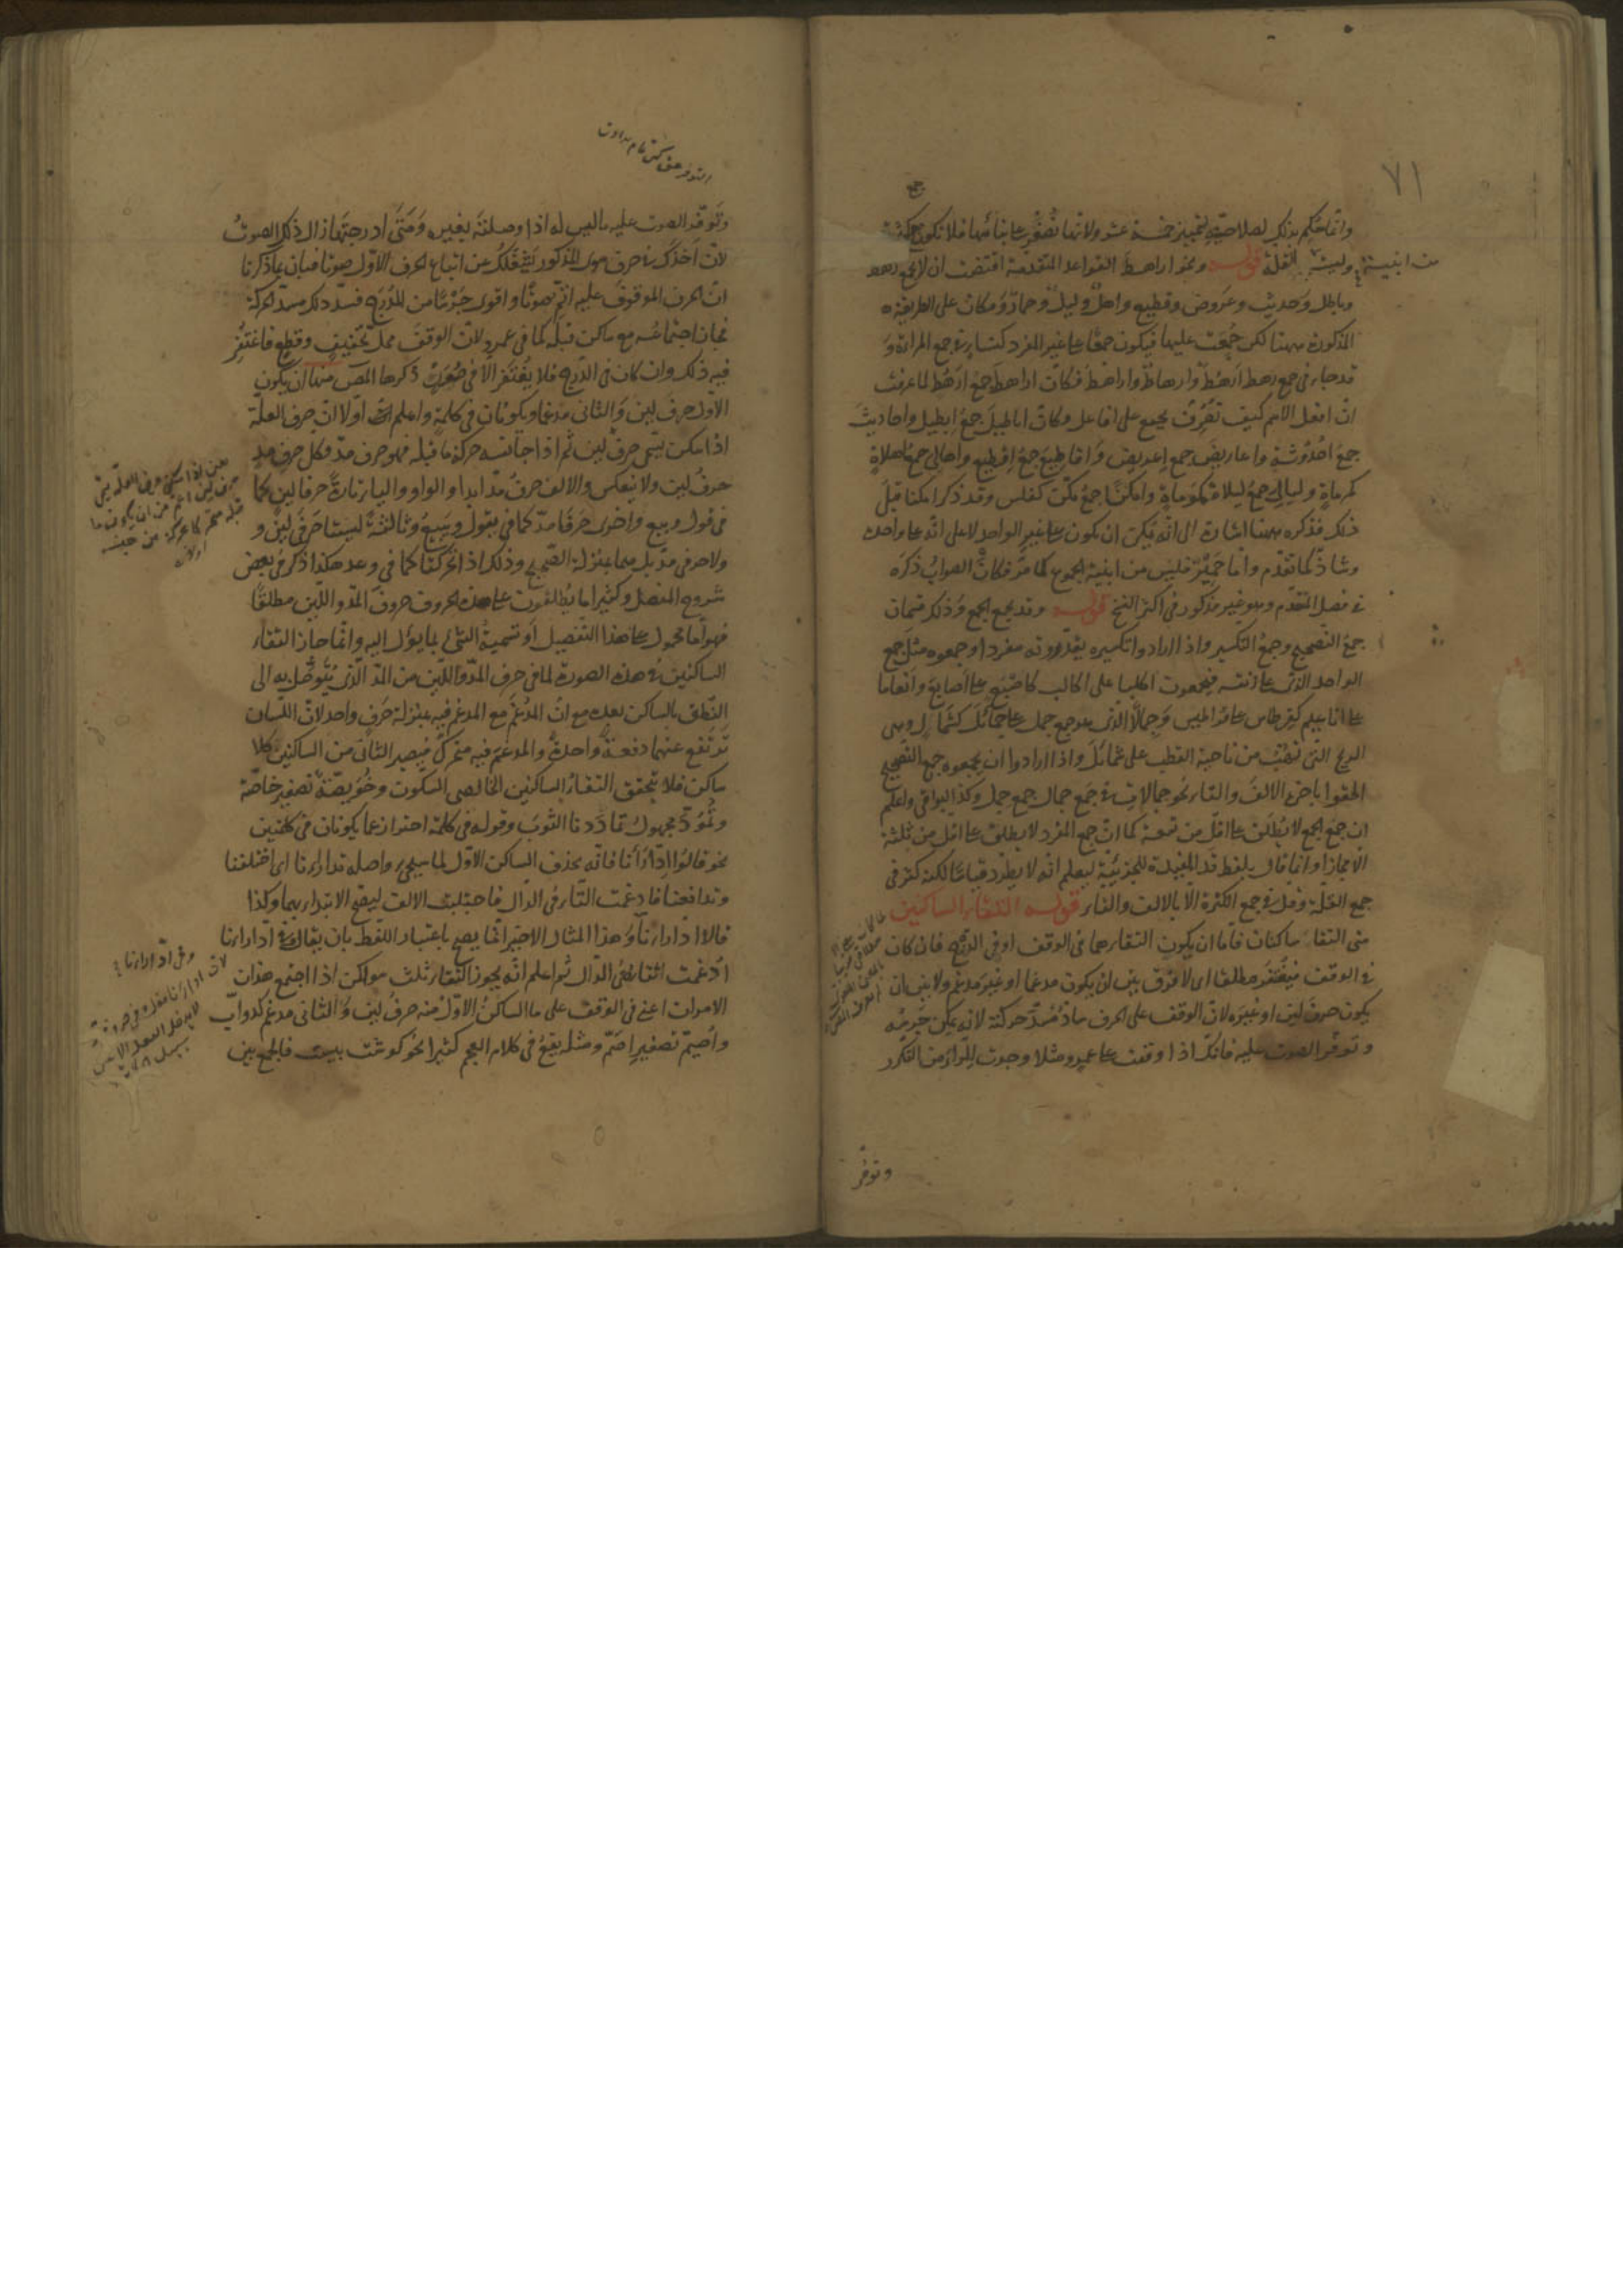 ٧١
وانما حكم بذلك لصلاحيته لتمييز خمسة عشر ولانها تصغر على بنائها فلا تكون جمع كثرة
من ابنية وليست القلة قوله ونحو اراهط القواعد المتقدمة اقتضت ان لا يجمع رهط
وباطل وحديث وعروض وقطيع واهل وليل وحمار ومكان على الطريقة
المذكورة ههنا لكن جمعت عليها فيكون جمعا على غير المفرد كنساء في جمع المرأة و
قد جاء في جمع رهط ارهط وارهاط واراهط فكان اراهط جمع ارهط لما عرفت
ان افعل الاسم كيف تصرف يجمع على افاعل وكان اباطيل جمع ابطيل واحاديث
جمع احدوثة واعاريض جمع اعريض واقاطيع جمع اقطيع واهالي جمع اهلاة
كمرماة وليالي جمع ليلاة كموماة وامكن جمع مكن كفلس وقد ذكر امكنا قبل
ذلك فذكره ههنا اشارة الى انه يمكن ان يكون على غير الواحد لا على انه على واحد
وشاذ كما تقدم واما حمير فليس من ابنية الجموع كما مر فكان الصواب ذكره
في فصل المتقدم وهو غير مذكور في اكثر النسخ قوله وقد يجمع الجمع وذلك قسمان
جمع التصحيح وجمع التكسير واذا ارادوا تكسيره يقدرونه مفردا وجمعوه مثل جمع
الواحد الذي على زنته فيجمعون اكلبا على اكالب كاصبع على اصابع وانعاما
على اناعيم كقرطاس على قراطيس وجمالا الذي هو جمع جمل على جمائل كشمال وهي
الريح التي تهب من ناحية القطب على شمائل واذا ارادوا ان يجمعوه جمع التصحيح
الحقوا باخره الالف والتاء نحو جمالات في جمع جمال جمع جمل وكذا البواقي واعلم
ان جمع الجمع لا يطلق على اقل من تسعة كما ان جمع المفرد لا يطلق على اقل من ثلثة
الا مجازا وانما قال بلفظ قد المفيدة للجزئية ليعلم انه لا يطرد قياسا لكنه كثر في
جمع القلة وقل في جمع الكثرة الا بالالف والتاء قوله التقاء الساكنين
متى التقا ساكنان فاما ان يكون التقاءهما في الوقف او في الدرج فان كان
في الوقف فيغتفر مطلقا اى لا فرق بين ان يكون مدغما او غير مدغم ولا بين ان
يكون حرف لين او غيره لان الوقف على الحرف سادّ مسدّ حركته لانه يمكن جرسه
وتوفر الصوت عليه فانك اذا وقفت على عمرو مثلا وجدت للراء من التكرر
وتوفر
وتوفر الصوت عليه ما ليس له اذا وصلته بغيره ومتى ادرجتها زال ذلك الصوت
لان اخذك في حرف سوى المذكور يشغلك عن اتباع الحرف الاول صوتا فبان بما ذكرنا
ان الحرف الموقوف عليه اتم صوتا واقوى جرسا من المدرج فسد ذلك مسد الحركة
فجاز اجتماعه مع ساكن قبله كما في عمرو لان الوقف محل تخفيف وقطع فاغتفر
فيه ذلك وان كان في الدرج فلا يغتفر الا في صور ذكرها المص منها ان يكون
الاول حرف لين والثاني مدغما ويكونان في كلمة واعلم اولا ان حرف العلة
اذا سكن يسمى حرف لين ثم اذا جانسه حركة ما قبله فهو حرف مد فكل حرف مد
حرف لين ولا ينعكس والالف حرف مد ابدا والواو والياء تارة حرفا لين كما
في قول وبيع واخرى حرفا مد كما في يقول ويبيع وثالثة ليستا حرفي لين و
ولا حرفي مد بل هما بمنزلة الصحيح وذلك اذا تحركتا كما في وعد هكذا ذكر في بعض
شروح المفصل وكثيرا ما يطلقون على هذه الحروف حروف المد واللين مطلقا
فهو اما محمول على هذا التفصيل او تسمية الشئ بما يؤل اليه وانما جاز التقاء
الساكنين في هذه الصورة لما في حرف المد واللين من المد الذي يتوصل به الى
النطق بالساكن بعده مع ان المدغم مع المدغم فيه بمنزلة حرف واحد لان اللسان
ترتفع عنهما دفعة واحدة والمدغم فيه متحرك فيصير الثاني من الساكنين كلا
ساكن فلا يتحقق التقاء الساكنين الخالصي السكون وخويصة تصغير خاصة
وتمود مجهول تماددنا الثوب وقوله في كلمة احتراز عما يكونان في كلمتين
نحو قالوا ادارأنا فانه يحذف الساكن الاول لما سيجئ واصله تدارأنا اى اختلفنا
وتدافعنا فادغمت التاء في الدال فاجتلبت الالف ليصح الابتداء بهما وكذا
قالا ادارأنا وهذا المثال الاخير انما يصح باعتبار اللفظ بان يقال في ادارأنا
ادغمت التاء في الدال ثم اعلم انه يجوز التقاء ثلث سواكن اذا اجتمع هذان
الامران اعني في الوقف على ما الساكن الاول منه حرف لين والثاني مدغم كدوابّ
واصيمّ تصغير اصمّ ومثله يقع في كلام العجم كثيرا نحو كوشت بيست فالجمع بين